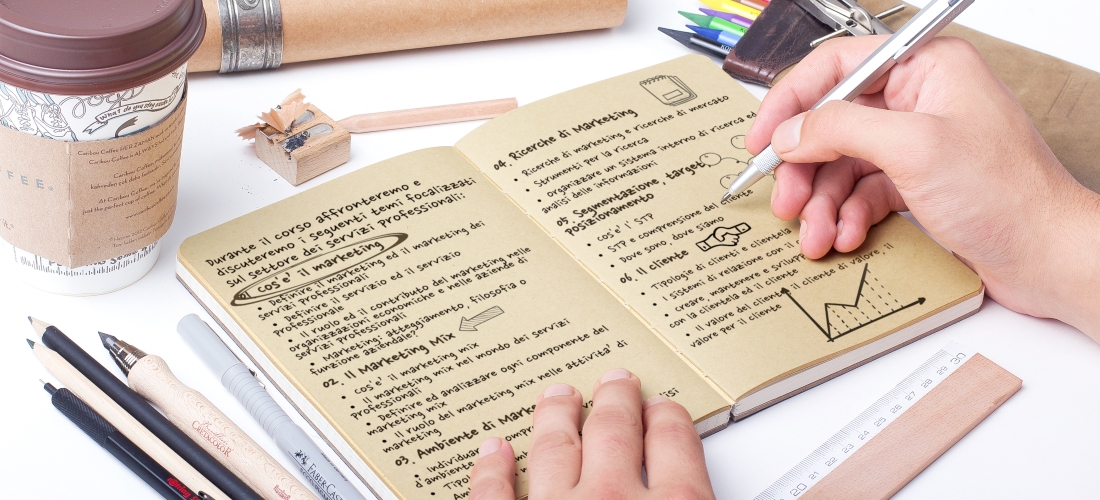 Durante il corso affronteremo e
discuteremo i seguenti temi focalizzati
sul settore dei servizi professionali:
cos e' il marketing
• Definire il marketing ed il marketing dei
servizi professionali
• Definire il servizio ed il servizio
professionale
• Il ruolo ed il contributo del marketing nelle
organizzazioni economiche e nelle aziende di
servizi professionali
• Marketing, atteggiamento, filosofia o
funzione aziendale?
02. Il Marketing Mix
• cos'e' il marketing mix
• Il marketing mix nel mondo dei servizi
professionali
• Definire ed analizzare ogni componente del
marketing mix
• Il ruolo del marketing mix nelle attivita' di
marketing
03. Ambiente di Mark
• Individua
d'ambiente
• Tipo
04. Ricerche di Marketing
• Ricerche di marketing e ricerche di mercato
• Strumenti per la ricerca
• Organizzare un sistema interno di ricerca ed
analisi delle informazioni
05 Segmentazione, target
Posizionamento
• cos'e' l' STP
• STP e comprensione del cliente
• Dove sono, dove siamo
06 Il cliente
• Tipologie di clienti e clientela
• I sistemi di relazione con
• creare, mantenere e svilupp
con la clientela ed il cliente
• Il valore del cliente il cliente di valore, il
valore per il cliente
What do you stay
Caribou Coffee HER ZAMAN
Caribou Coffee is ALWAYS
FFEE
FABER-CAST
20 21 22 23 24 25 26 27 28 29 30